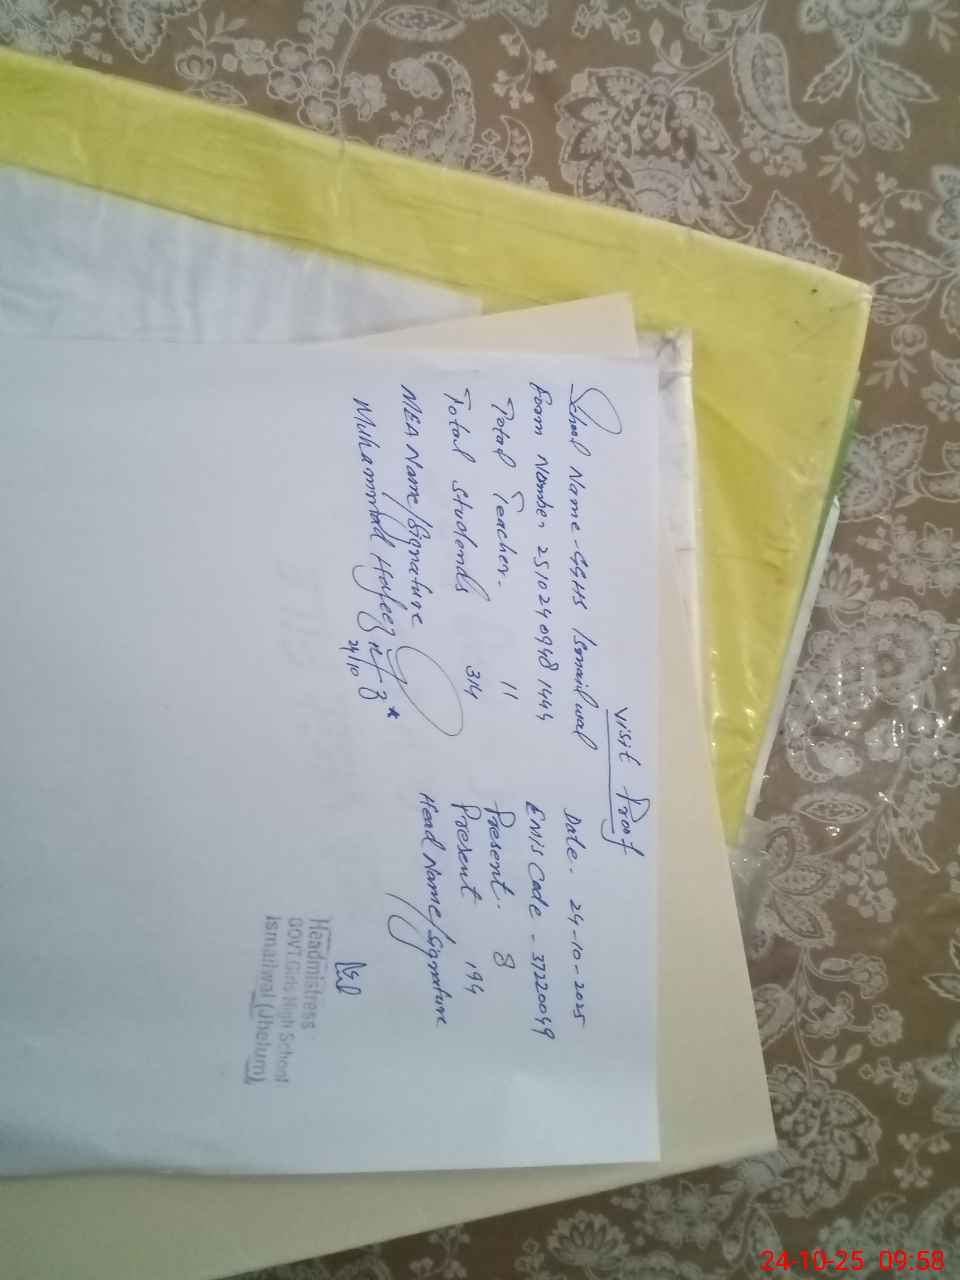 Visit Proof
School Name - GGHS Ismailwal Date. 24-10-2025
Foam Number 2510240948 1444 EMIS Code - 37220049
Total Teacher. 11 Present. 8
Total Students 314 Present 194
MEA Name/Signature Head Name/Signature
Muhammad Hafeez
24/10
Headmistress
GOVT Girls High School
Ismailwal (Jhelum)
24-10-25 09:58